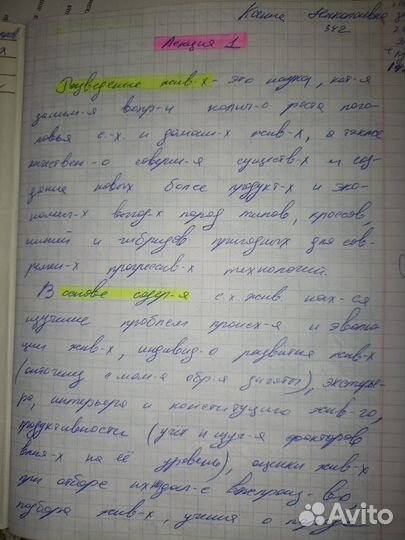 Ксения Николаевна
342
Лекция 1
Разведение жив-х - это наука, кот-я
заним-я вопр-и колич-о роста пого-
ловья с.-х. и домаш-х жив-х, а также
качествен-о соверш-я существ-х и соз-
дание новых более продукт-х и эко-
номич-х выгод-х пород, типов, кроссов,
линий и гибридов пригодных для сов-
ремен-х прогрессив-х технологий.
В основе содер-я с.х. жив. нах-ся
изучение проблем происх-я и эволю-
ции жив-х, индивид-о развития жив-х
(онтогенез с мом-а обр-я зиготы), экстерье-
ра, интерьера и конституции жив-го,
продуктивности (учёт и изуч-я факторов
влия-х на её уровень), оценки жив-х
при отборе их для воспроиз-ва,
подбора жив-х, учения о породе
Avito